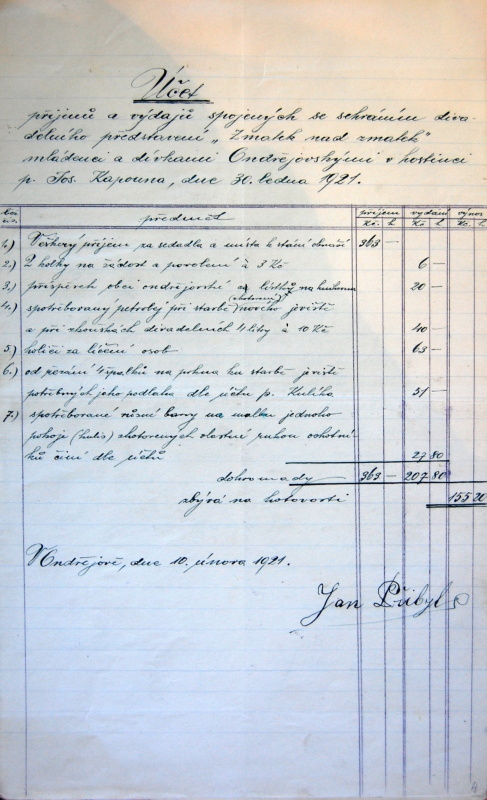 Účet
příjmů a výdajů spojených se sehráním diva-
delního představení „Zmatek nad zmatek"
mládenci a dívkami Ondřejovskými v hostinci
p. Jos. Kapouna, dne 30. ledna 1921.
předmět příjem vydání výnos
Kč. h. Kč h. Kč. h.
1.) Veškerý příjem za sedadla a místa k stání obnáší 363 —
2.) 2 kolky na žádost a povolení à 3 Kč 6 —
3.) příspěvek obci ondřejovské z lístků na 20 —
4.) spotřebovaný petrolej při stavbě (zhotovení) nového jeviště
a při zkouškách divadelních 4 litry à 10 Kč 40 —
5.) holiči za líčení osob 63 —
6.) od řezání 4 špalků na prkna ku stavbě jeviště
potřebných jeho podlaha dle účtu p. Kulíka 51 —
7.) spotřebované různé barvy na malbu jednoho
pokoje (kulis) zhotovených vlastní rukou ochotní-
ků činí dle účtů 27 80
dohromady 363 — 207 80
zbývá na hotovosti 155 20
V Ondřejově, dne 10. února 1921.
Jan Přibyl